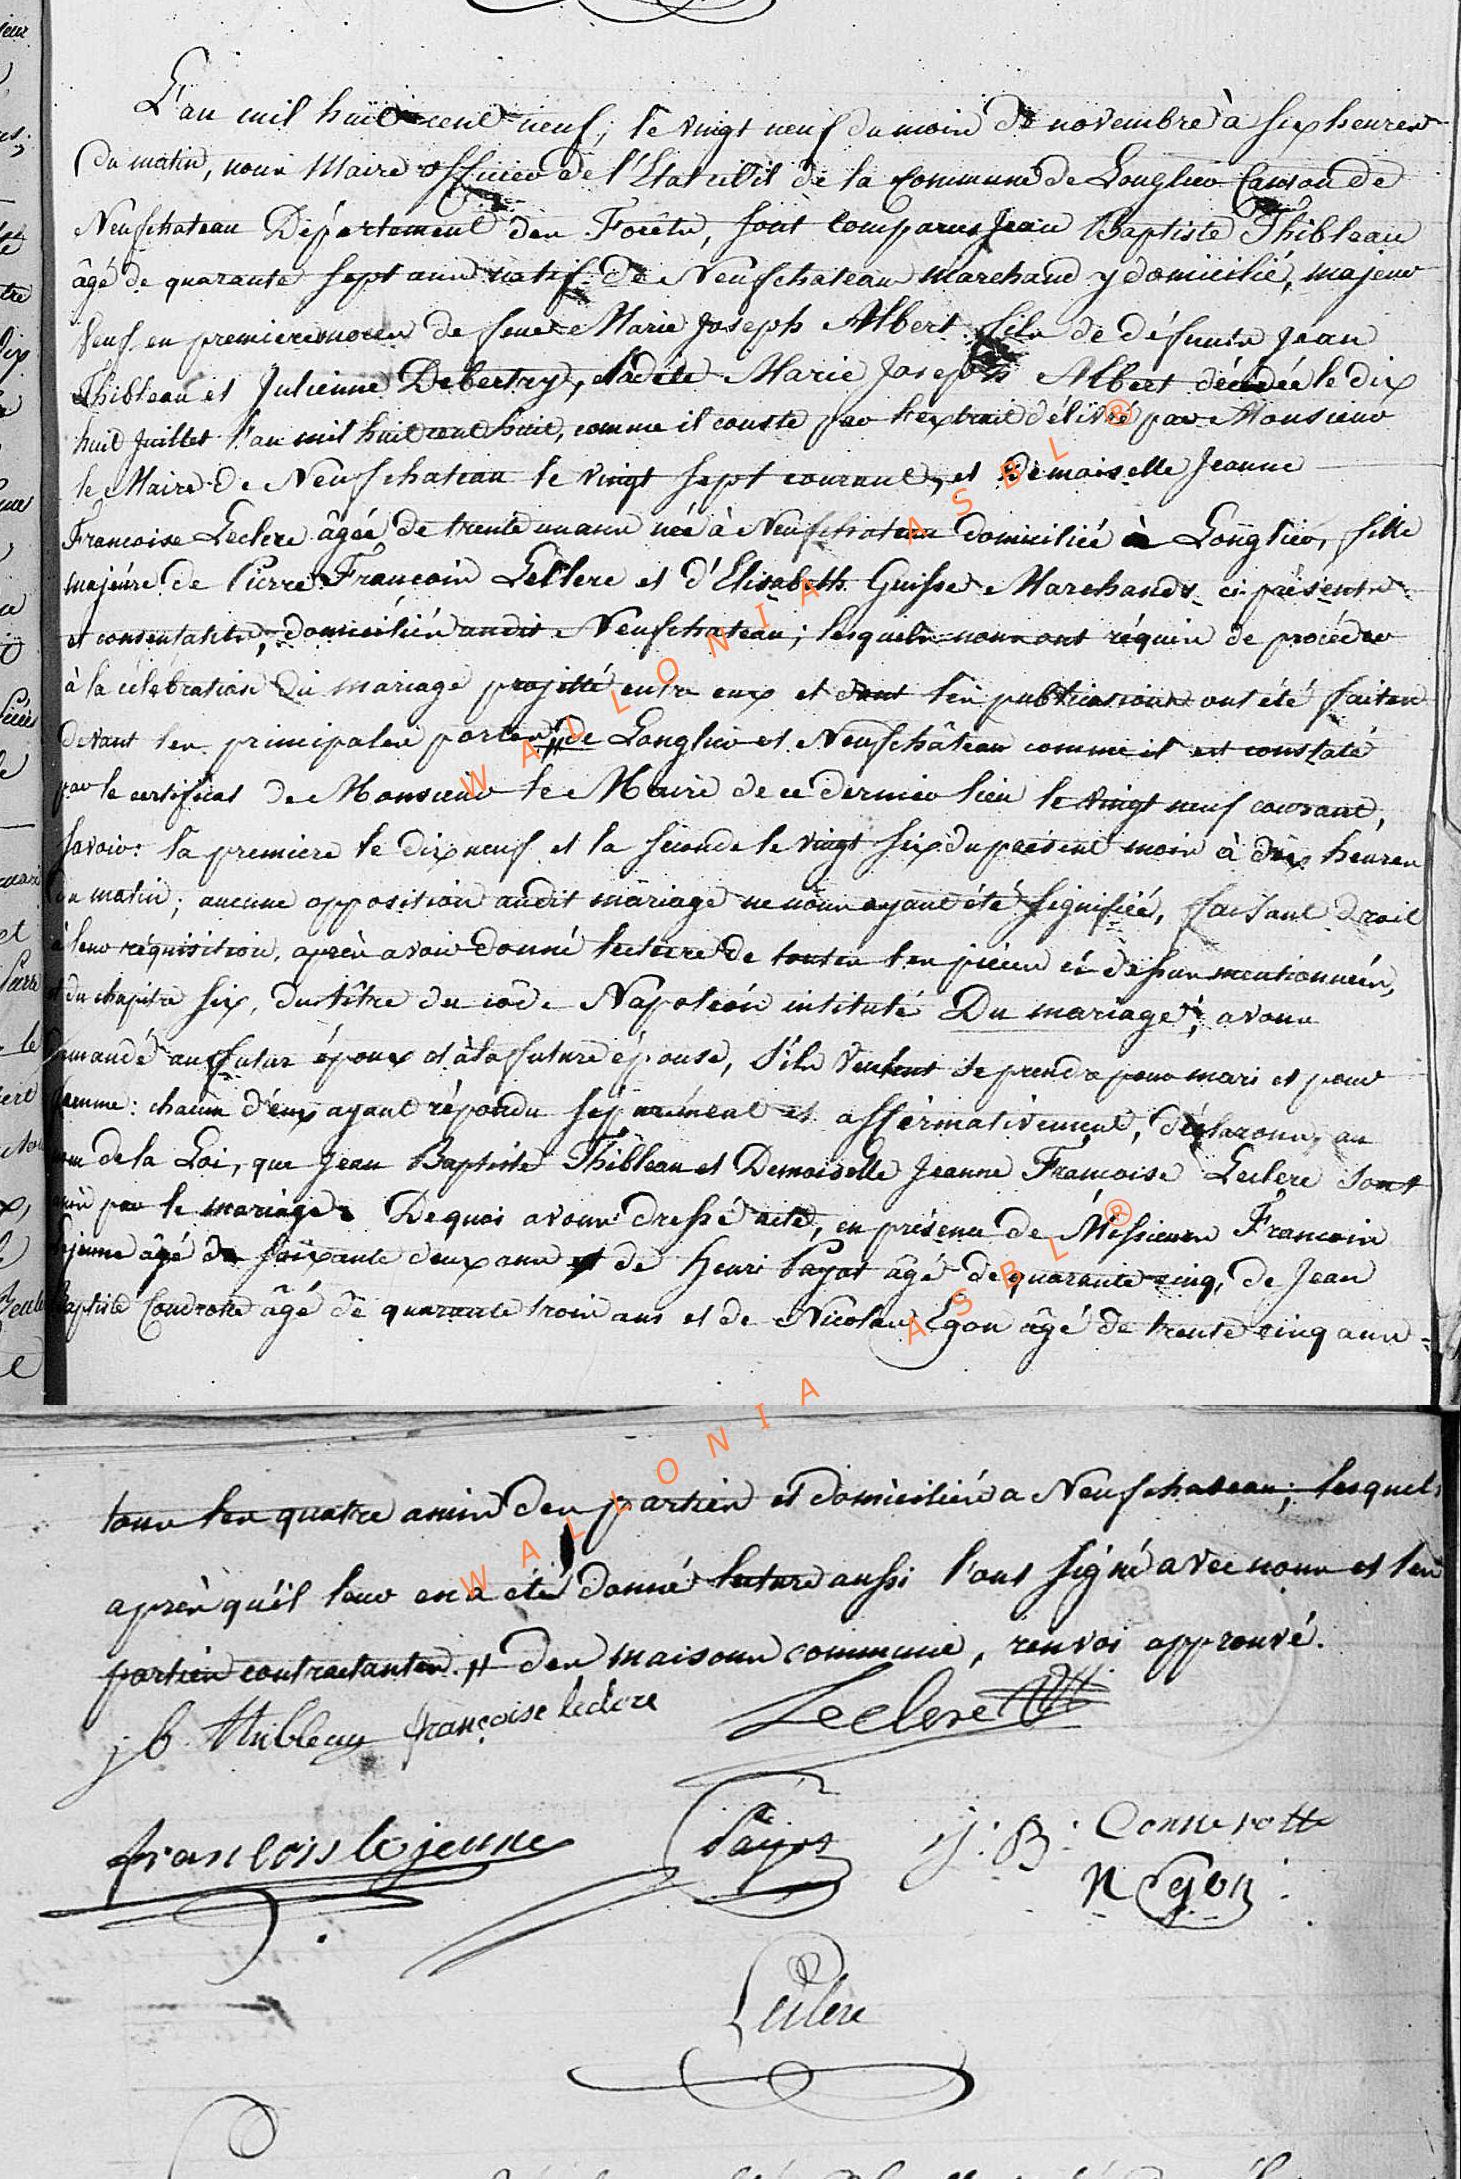 L'an mil huit cent neuf, le vingt neuf du mois de novembre à six heures
du matin, nous Maire officier de l'Etat civil de la Commune de Longlier Canton de
Neufchateau Département des Forêts, sont comparus Jean Baptiste Thibleau
âgé de quarante sept ans natif de Neufchateau marchand y domicilié, majeur
veuf en premieres noces de feue Marie Joseph Albert fils de défunts Jean
Thibleau et Julienne Debertry, ladite Marie Joseph Albert décédée le dix
huit Juillet l'an mil huit cent huit, comme il conste par l'extrait délivré par Monsieur
le Maire de Neufchateau le vingt sept courant, et Demoiselle Jeanne
Francoise Leclere âgée de trente un ans née à Neufchateau domiciliée à Longlier, fille
majeure de Pierre Francois Leclere et d'Elisabeth Guisse Marchands ci présents
et consentants, domiciliés audit Neufchateau; lesquels nous ont réquis de procéder
à la célébration du mariage projetté entre eux et dont les publications ont été faites
devant les principales portes // de Longlier et Neufchâteau comme il est constaté
par le certificat de Monsieur le Maire de ce dernier lieu le vingt neuf courant,
savoir: la premiere le dix neuf et la seconde le vingt six du présent mois à dix heures
du matin; aucune opposition audit mariage ne nous ayant été signifiée, faisant droit
à leur réquisition, après avoir donné lecture de toutes les pièces ci dessus mentionnées,
et du chapitre six, du titre du côde Napoléon intitulé Du mariage, avons
demandé au futur époux et à la future épouse, s'ils veulent se prendre pour mari et pour
femme: chacun d'eux ayant répondu séparément et affirmativement, déclarons, au
nom de la Loi, que Jean Baptiste Thibleau et Demoiselle Jeanne Francoise Leclere sont
unis par le mariage. De quoi avons dressé acte, en présence de Messieurs Francois
Lejeune âgé de soixante deux ans et de Henri Payot âgé de quarante cinq, de Jean
Baptiste Condrotte âgé de quarante trois ans et de Nicolas Egon âgé de trente cinq ans
tous les quatre amis des parties et domiciliés a Neufchateau; lesquels
après qu'il leur en a été donné lecture aussi l'ont signé avec nous et les
parties contractantes. // des maisons commune, renvoi approuvé.
j b thibleau françoise leclere Leclere
francois lejeune Payot J: B: Connerotte
N Egon
Leclere
WALLONIA ASBL ®
WALLONIA ASBL ®